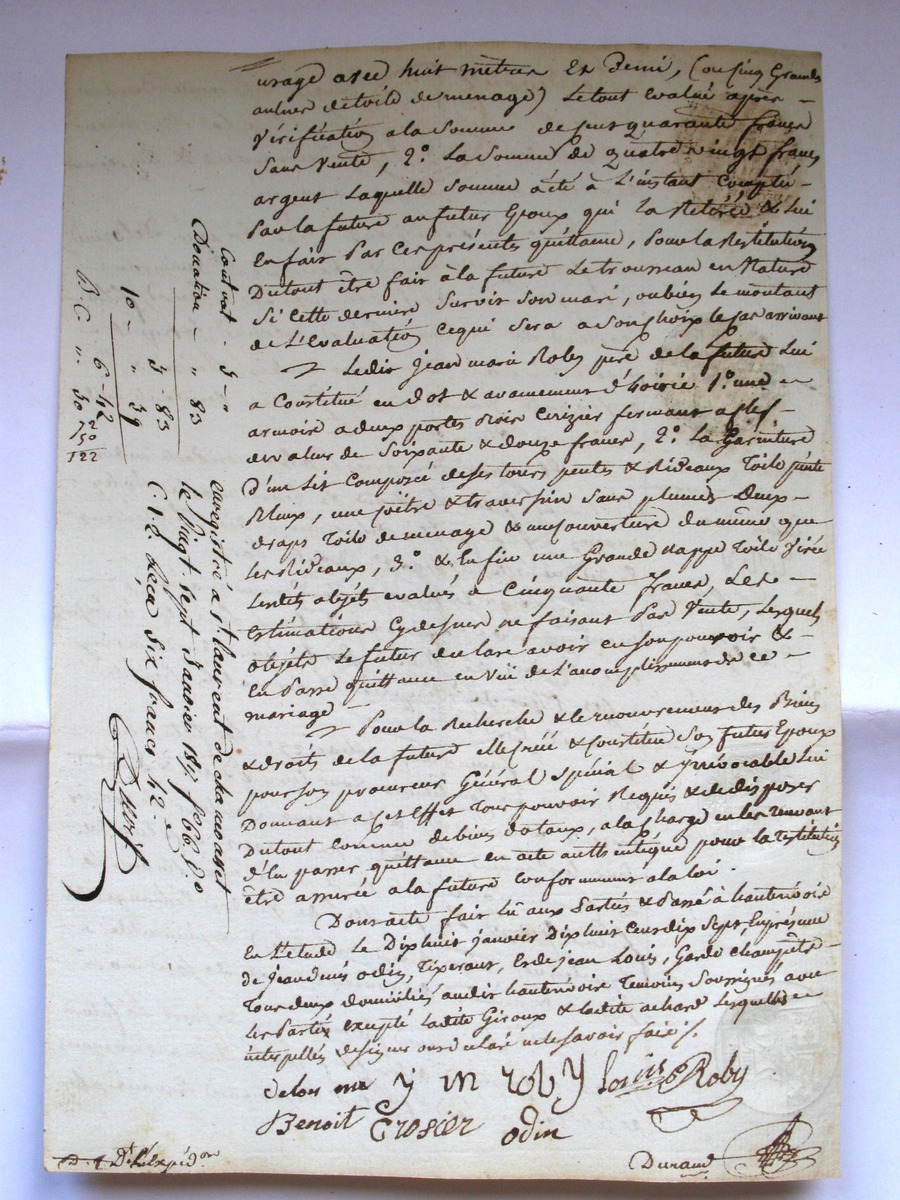 usage avec huit mètres et Demi, (ou cinq Grandes
aulnes de toile de menage) le tout evalué après –
Vérification a la Somme de quarante francs
Sans Vente, 2º. La Somme de quatre vingt francs
argent laquelle somme a été à L'instant Comptée –
Par la future au futur Epoux qui la Retirée & Lui
En fait Par ces présentes quittance, Pour la Restitution
Du tout être fait à la future Le trousseau en Nature
Si cette dernière Survit Son mari, ou bien Le montant
de L'Evaluation ce qui Sera a Son choix le Cas arrivant
Ledit Jean marie Roby père de la future Lui
a Constitué en Dot & avancement d'hoirie 1º. une –
armoire a deux portes Bois Cerizier fermant a Clef –
de valeur de Soixante & douze francs, 2º. La Garniture
D'un Lit Composée de ses tours pentes & Rideaux Toile peinte
Bleux, une coëtre & traversin Sans plumes Deux –
draps Toile de menage & une Couverture du même que
Les Rideaux, 3º. & Enfin une Grande nappe Toile
Lesdits objets evalués a Cinquante francs, Les –
Estimations Cy dessus ne faisant Pas Vente, Lesquels
objets Le futur declare avoir en son pouvoir &
En Passe quittance en Vüe de L'accomplissement de ce –
mariage –
Pour la Recherche & le recouvrement des Biens
& droits de la future elle créé & Constitue Son futur Epoux
pour son procureur Général Spécial & irrévocable Lui
Donnant a cet Effet Tous pouvoir Requis & de disposer
Du tout comme de biens dotaux, a la Charge en les recevant
d'En passer quittance en acte authentique pour la restitution
être assurée a la future Conformément a la loi.
Dont acte fait lû aux Parties & Passé à hauterivoire
En L'etude Le Dix huit janvier Dix huit Cent dix Sept, En présence
de Jean Denis odin, Tixerant, Et de Jean Louis, Garde champêtre –
Tous deux domiciliés audit hauterivoire Temoins Soussignés avec
Les Parties excepté Ladite Giroux & Ladite achard Lesquelles –
interpellées de signer ont declaré ne le savoir faire /.
y m roby Louis Roby
Benoit Crosier odin
Durand
Dt. L'expédon
Contrat - 3 - "
Donation - " 83
3 - 83
" 39
10 –
6 - 42
B. C. " 50
72
50
122
enregistré à St laurent de chamousset
le Vingt Sept Janvier 1817 fº 66
Reçu Six francs 42 –